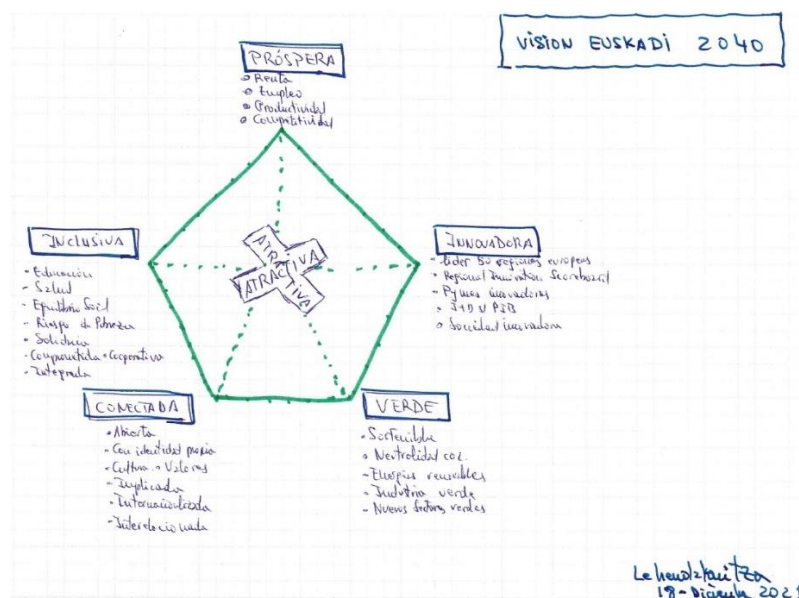 VISION EUSKADI 2040
PRÓSPERA
Renta
Empleo
Productividad
Competitividad
INCLUSIVA
- Educación
- Salud
- Equilibrio Social
- Riesgo de Pobreza
- Solidaria
- Comprometida + Cooperativa
- Integrada
ATRACTIVA
ATRACTIVA
INNOVADORA
- Líder 50 regiones europeas
Regional Innovation Scoreboard
- Pymes innovadoras
I+D % PIB
Sociedad innovadora
CONECTADA
Abierta
- Con identidad propia
- Cultura + Valores
- Implicada
- Internacionalizada
- Interrelacionada
VERDE
Sostenible
Neutralidad
- Energías renovables
- Industria verde
- Nuevos sectores verdes
Lehendakaritza
18-Diciembre 2021